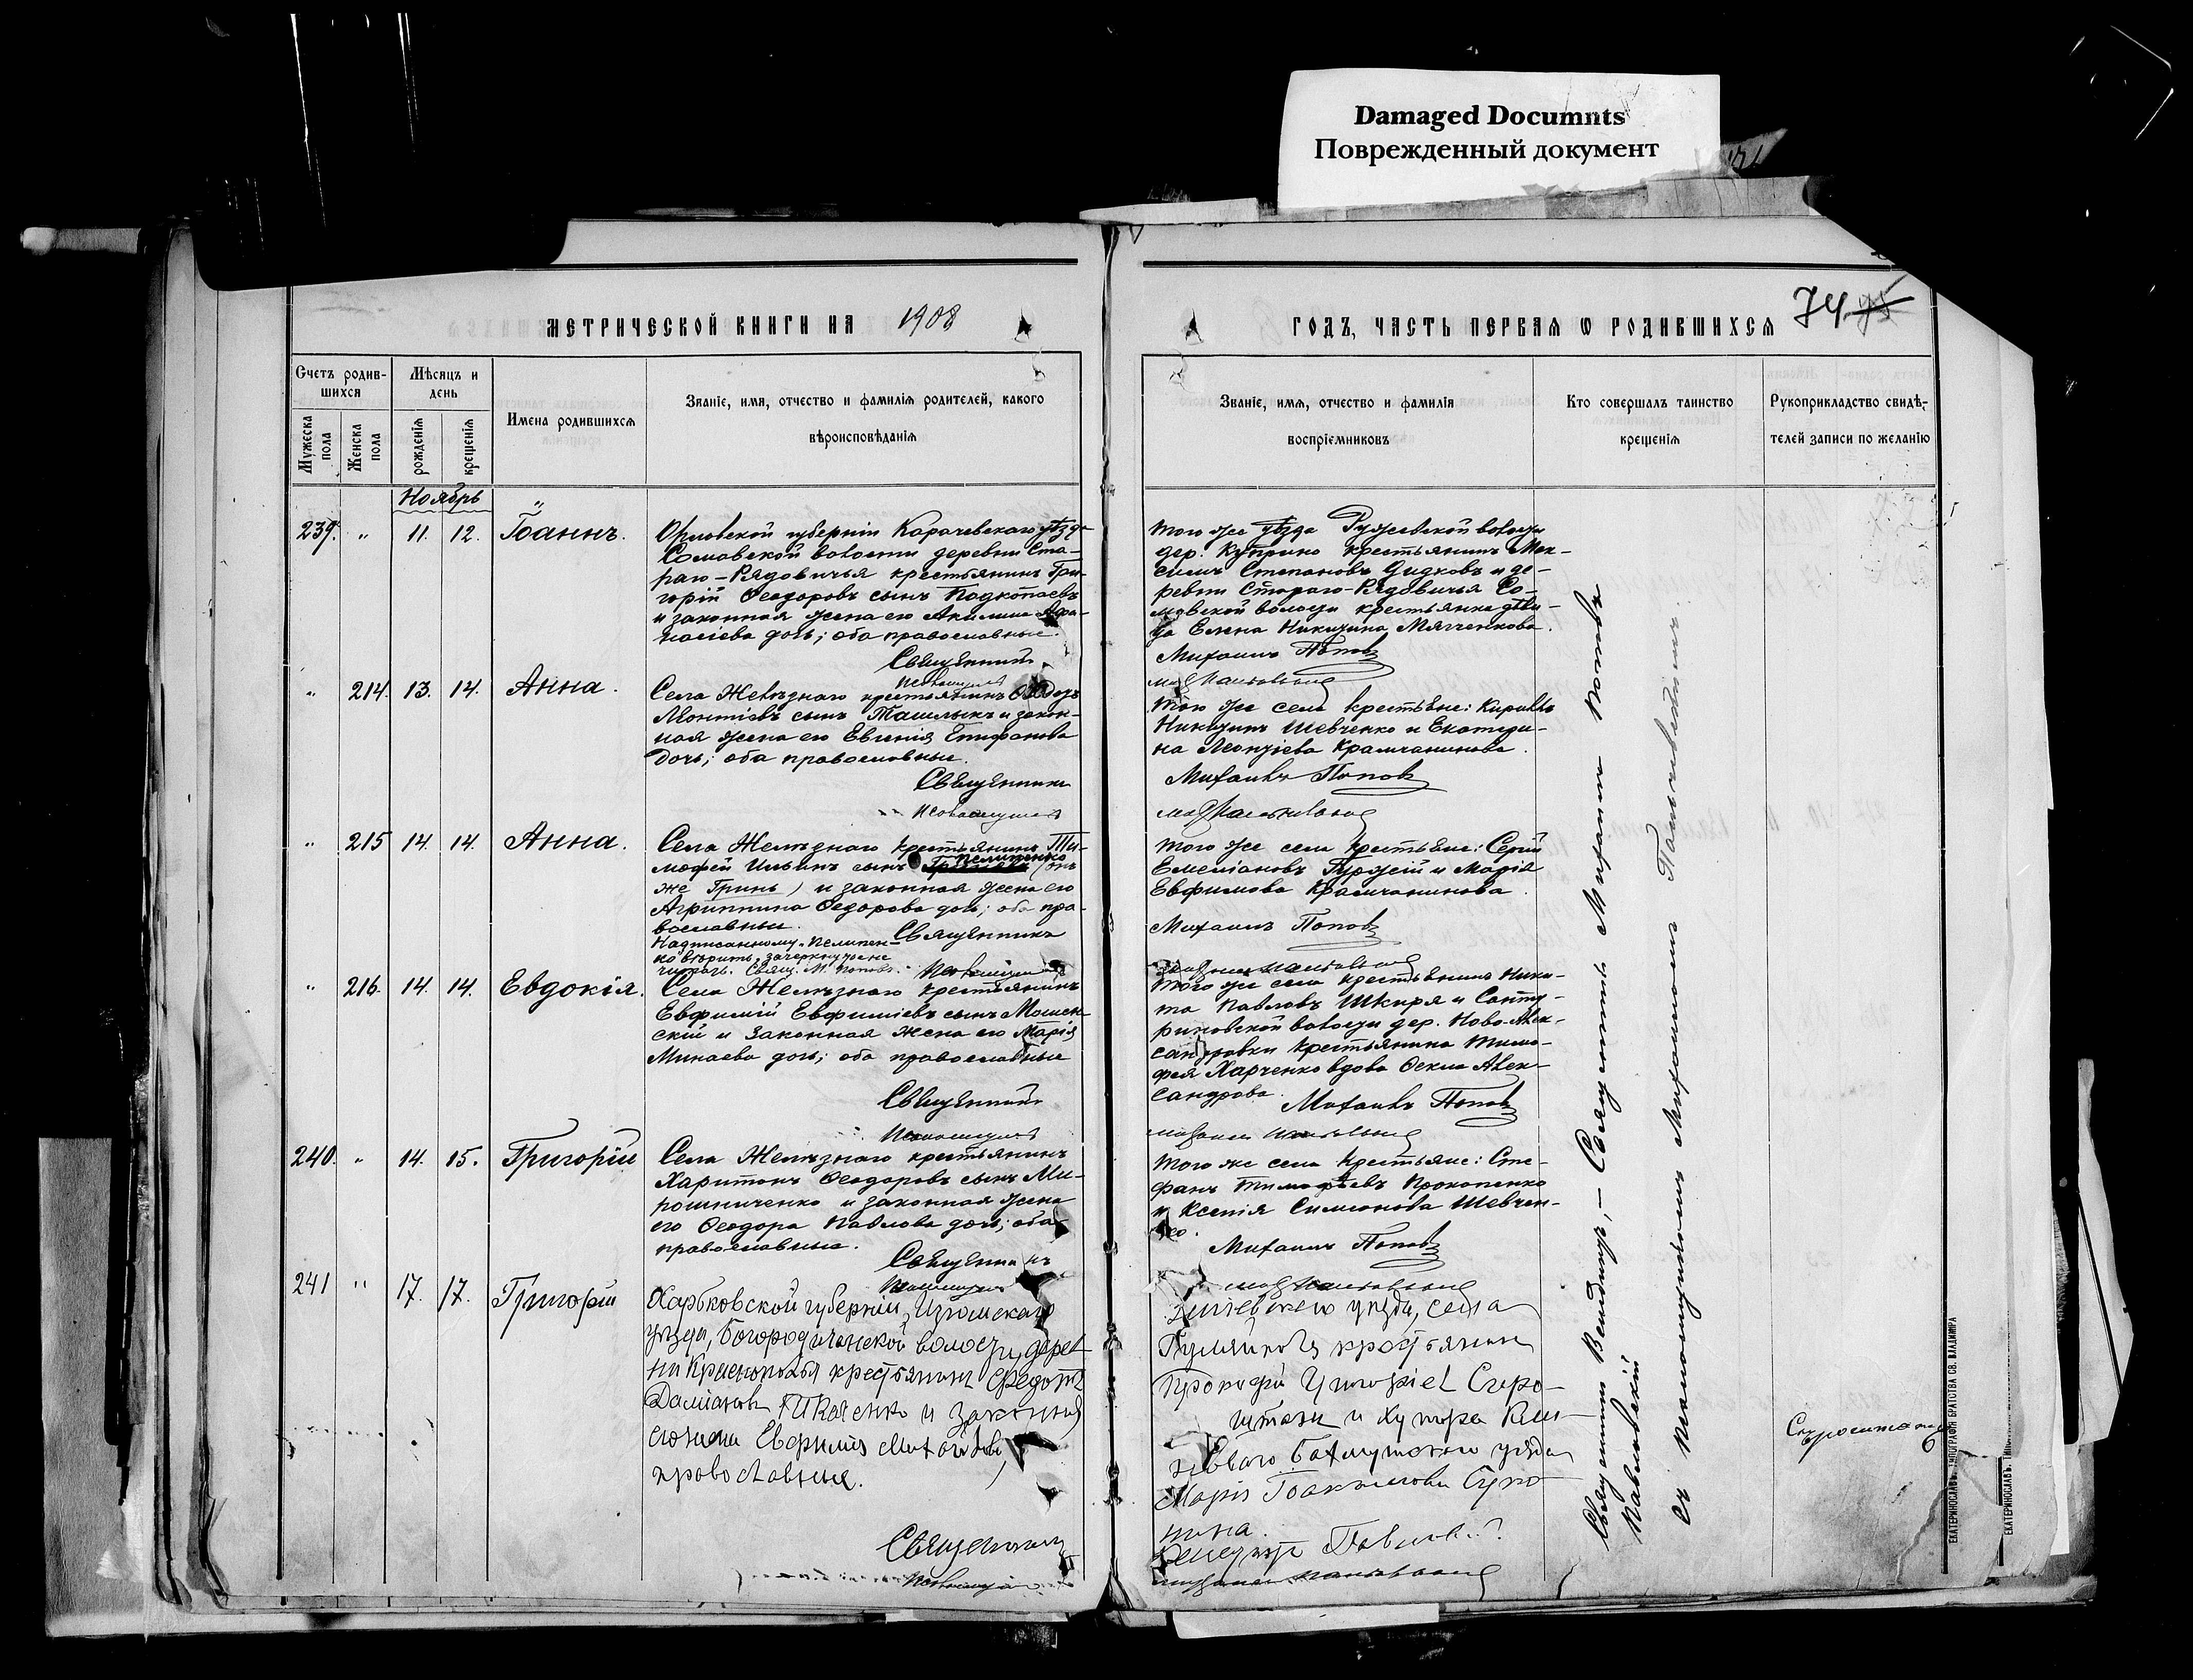 Damaged Documnts
Поврежденный документ
МЕТРИЧЕСКОЙ КНИГИ НА 1908
ГОДЪ, ЧАСТЬ ПЕРВАЯ Ѡ РОДИВШИХСЯ
74 75
Счетъ родив-
шихся
Мужеска
пола
Женска
пола
Мѣсяцъ и
день
рожденія
крещенія
Имена родившихся
Званіе, имя, отчество и фамилія родителей, какого
вѣроисповѣданія
Званіе, имя, отчество и фамилія
воспріемниковъ
Кто совершалъ таинство
крещенія
Рукоприкладство свидѣ-
телей записи по желанію
Ноябрь
239. " 11. 12. Іоаннъ.
Орловской губерніи Карачевскаго уѣзда
Сомовской волости деревни Ста-
раго-Рядовичья крестьянинъ Гри-
горій Ѳеодоровъ сынъ Подкопаевъ
и законная жена его Акилина Афа-
насіева дочь; оба православные.
Священникъ
того же уѣзда Ружевской волости
дер. Куприно крестьянинъ Мак-
симъ Степановъ Дидковъ и де-
ревни Стараго-Рядовичья Со-
мовской волости крестьянка дѣви-
ца Елена Никитина Мягченкова.
Михаилъ Поповъ
" 214. 13. 14. Анна.
Села Желѣзнаго крестьянинъ Ѳеодоръ
Леонтіевъ сынъ Ташлыкъ и закон-
ная жена его Евгенія Епифанова
дочь; оба православные.
Священникъ
того же села крестьяне: Кириллъ
Никитинъ Шевченко и Екатери-
на Леонтіева Крамчанинова.
Михаилъ Поповъ
" 215 14. 14. Анна.
Села Желѣзнаго крестьянинъ Ти-
мофей Ильинъ сынъ Пелипенко (онъ
же Гринь) и законная жена его
Агриппина Ѳедорова дочь; оба пра-
вославные.
Священникъ
Надписанному „Пелипен-
ко вѣрить, зачеркнутое не
читать. Свящ. М. Поповъ.
того же села крестьяне: Сергій
Емеліановъ Гуржій и Марія
Евфимова Крамчанинова.
Михаилъ Поповъ
" 216. 14. 14. Евдокія.
Села Желѣзнаго крестьянинъ
Евфимій Евфиміевъ сынъ Мошен-
скій и законная жена его Марія
Минаева дочь; оба православные
Священникъ
того же села крестьянинъ Ники-
та Павловъ Шкиря и Санту-
риновской волости дер. Ново-Алек-
сандровки крестьянина Тимо-
фея Харченко вдова Ѳекла Алек-
сандрова.
Михаилъ Поповъ
240. " 14. 15. Григорій
Села Желѣзнаго крестьянинъ
Харитонъ Ѳеодоровъ сынъ Ми-
рошниченко и законная жена
его Ѳеодора Павлова дочь; оба
православные.
Священникъ
того же села крестьяне: Сте-
фанъ Тимофѣевъ Прокопенко
и Ксенія Симеонова Шевчен-
ко.
Михаилъ Поповъ
241 " 17. 17. Григорій
Харьковской губерніи, Изюмскаго
уѣзда, Богородичанской волости, дерев-
ни Краснополья крестьянинъ Ѳедотъ
Даміановъ Ткаченко и законная
его жена Евфимія
православные.
Священникъ
уѣзда, села
крестьянинъ
Прокофій
и хутора
Бахмутскаго уѣзда
Марія Іоакимова
Священникъ Михаилъ Поповъ
Павловскій
съ псаломщикомъ Михаиломъ
ЕКАТЕРИНОСЛАВЪ. ТИПОГРАФІЯ БРАТСТВА СВ. ВЛАДИМІРА